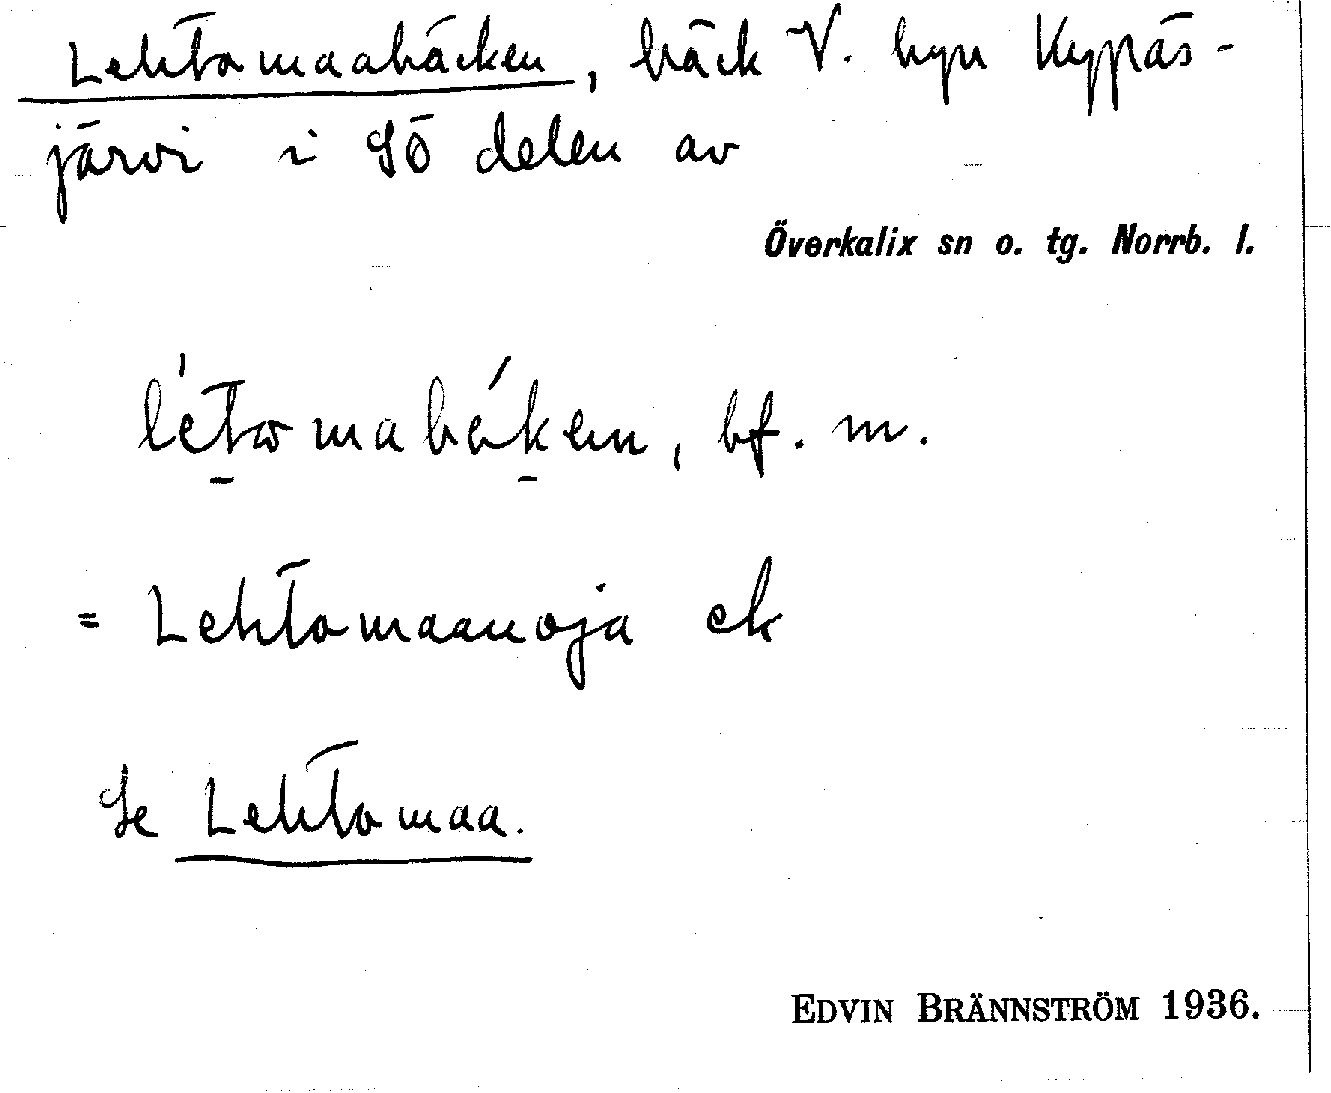 Lehtomaabäcken, bäck V. byn Kypäs-
järvi i SÖ delen av
Överkalix sn o. tg. Norrb. l.
bf. m.
= Lehtomaanoja ek
Se Lehtomaa.
EDVIN BRÄNNSTRÖM 1936.